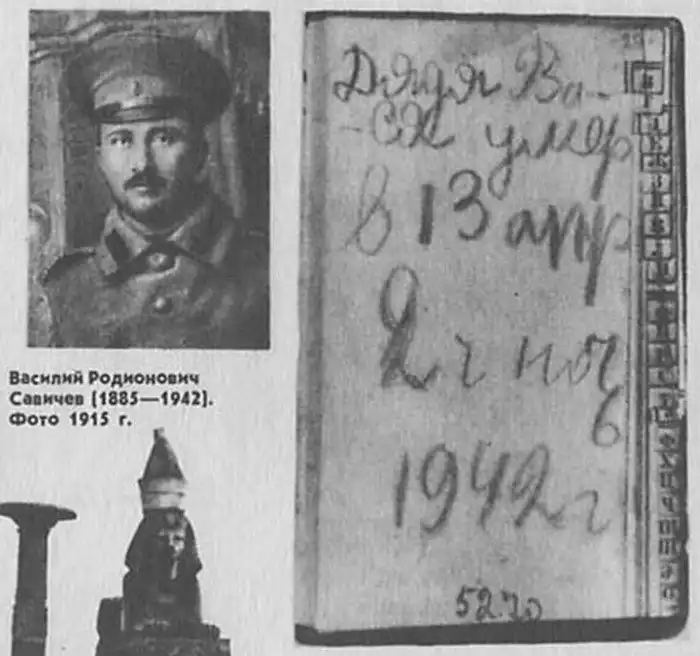 Василий Родионович
Савичев (1885—1942).
Фото 1915 г.
Дядя Ва-
-ся умер
в 13 апр
2 ч ноч
ь
1942 г
52.70